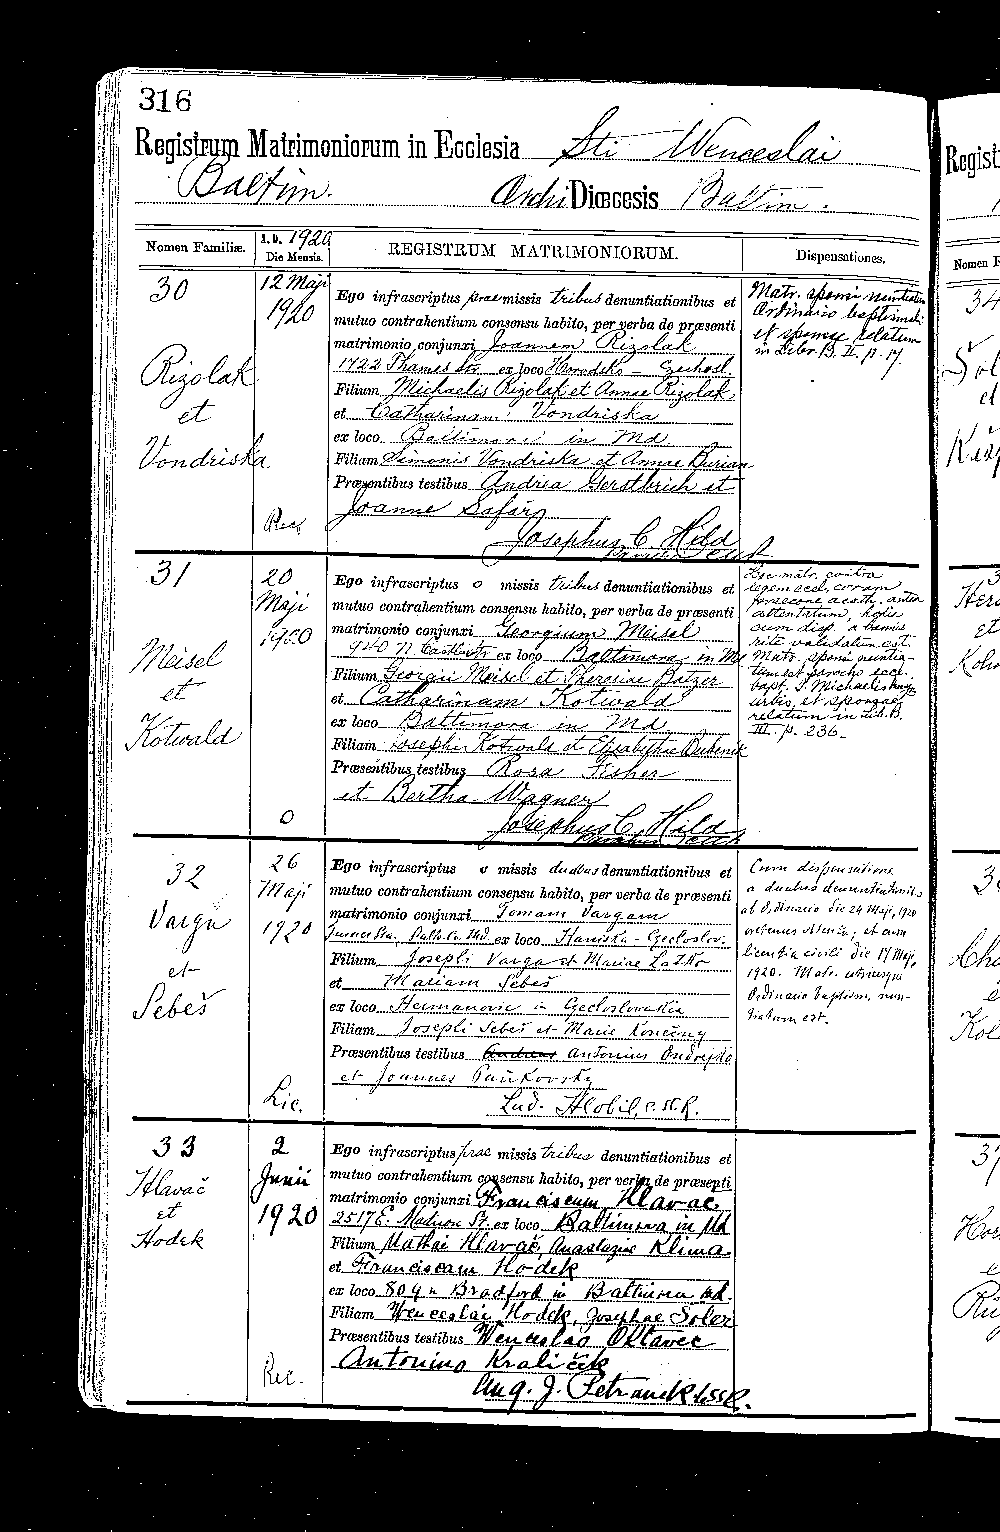 316
Registrum Matrimoniorum in Ecclesia Sti Wenceslai
Baltim. Archi Diœcesis Baltim.
Nomen Familiæ. A.D. 1920 Die Mensis. REGISTRUM MATRIMONIORUM. Dispensationes.
30
Rizolak
et
Vondriska
12 Maji
1920
Rec.
Ego infrascriptus prae missis tribus denuntiationibus et
mutuo contrahentium consensu habito, per verba de præsenti
matrimonio conjunxi Joannem Rizolak
1722 Thames Str. ex loco Czechosl.
Filium Michaelis Rizolak et Annae Rizolak
et Catharinam Vondriska
ex loco Baltimore in Md
Filiam Simonis Vondriska et Annae Burian
Præsentibus testibus Andrea Gerstbrich et
Joanne Safar
Josephus C. Hild
Matr. sponsi nuntiatum
Ordinario baptismali
et sponsae relatum
in Liber B. II. p. 17.
31
Meisel
et
Kotwald
20
Maji
1920
o
Ego infrascriptus o missis tribus denuntiationibus et
mutuo contrahentium consensu habito, per verba de præsenti
matrimonio conjunxi Georgium Meisel
940 N. Castle Str ex loco Baltimora in Md
Filium Georgii Meisel et Theresiae Balzer
et Catharinam Kotwald
ex loco Baltimora in Md
Filiam Josephi Kotwald et Elisabethae
Præsentibus testibus Rosa Fisher
et Bertha Wagner
Josephus C. Hild
Hoc matr. contra
legem eccl. coram
acath. antea
attentatum, hodie
cum disp. a bannis
rite validatum est.
Matr. sponsi nuntia-
tum est parocho eccl.
bapt. S. Michaelis hujus
urbis, et sponsae
relatum in Lib. B.
III. p. 236.
32
Varga
et
Sebeš
26
Maji
1920
Lic.
Ego infrascriptus o missis duobus denuntiationibus et
mutuo contrahentium consensu habito, per verba de præsenti
matrimonio conjunxi Tomam Vargam
Turner Sta., Balto. Co. Md. ex loco Haniska - Czecloslov.
Filium Josepli Varga et Mariae Latko
et Mariam Sebeš
ex loco Hermanovie in Czecloslovakia
Filiam Josepli Sebeš et Marie Konečny
Præsentibus testibus Andreas Antonius Ondrejko
et Joannes Pankovsky
Lud. Hlobil, c.ss.R.
Cum dispensatione
a duabus denuntiationib.
ab Ordinario die 24 Maji, 1920
obtenta; et cum
licentia civili die 17 Maji,
1920. Matr. utriusque
Ordinario baptism. nun-
tiatum est.
33
Hlavač
et
Hodek
2
Junii
1920
Rec.
Ego infrascriptus prae missis tribus denuntiationibus et
mutuo contrahentium consensu habito, per verba de præsenti
matrimonio conjunxi Franciscum Hlavac
2517 E. Madison St. ex loco Baltimora in Md
Filium Mathei Hlavač, Anastaziae Klima
et Franciscam Hodek
ex loco 809 n Bradford in Baltimora Md.
Filiam Wenceslai Hodek, Josephae Soler
Præsentibus testibus Wenceslao Oktavec
Antonino Kraliček
Aug. J. Petranek c.ss.R.
Regist
Nomen F
34
Šol
et
Her
et
Cha
Kol
37
Hor